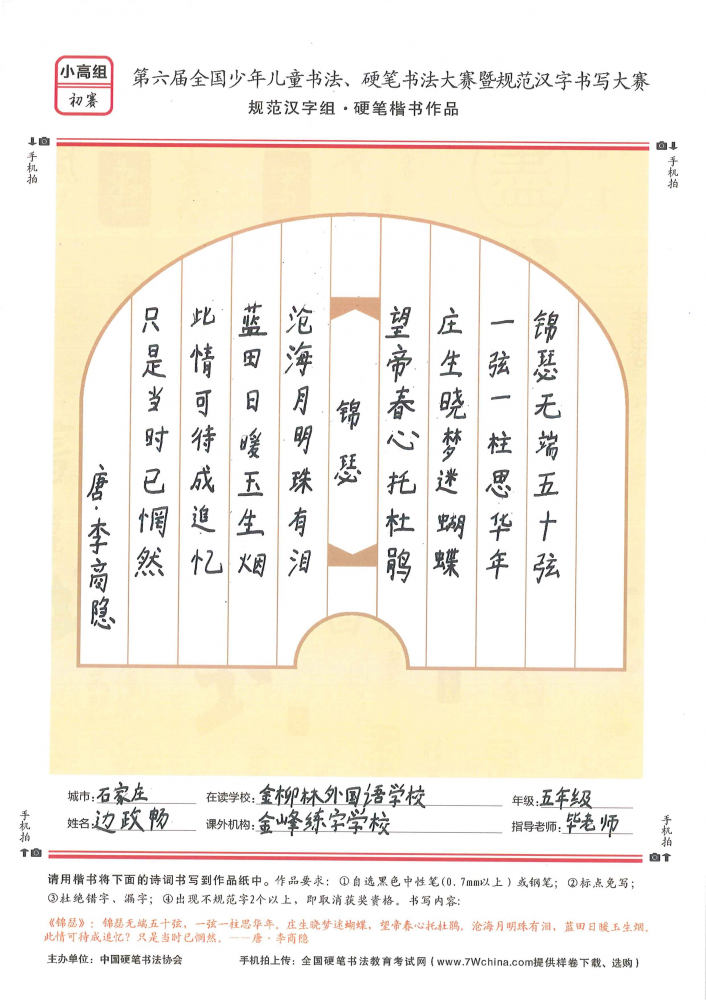 小高组
初赛
第六届全国少年儿童书法、硬笔书法大赛暨规范汉字书写大赛
规范汉字组·硬笔楷书作品
手机拍
手机拍
锦瑟无端五十弦
一弦一柱思华年
庄生晓梦迷蝴蝶
望帝春心托杜鹃
锦瑟
沧海月明珠有泪
蓝田日暖玉生烟
此情可待成追忆
只是当时已惘然
唐·李商隐
手机拍
手机拍
城市:石家庄 在读学校:金柳林外国语学校 年级:五年级
姓名:边政畅 课外机构:金峰练字学校 指导老师:毕老师
请用楷书将下面的诗词书写到作品纸中。作品要求：①自选黑色中性笔(0.7mm以上）或钢笔；②标点免写；
③杜绝错字、漏字；④出现不规范字2个以上，即取消获奖资格。书写内容：
《锦瑟》：锦瑟无端五十弦，一弦一柱思华年。庄生晓梦迷蝴蝶，望帝春心托杜鹃。沧海月明珠有泪，蓝田日暖玉生烟。
此情可待成追忆？只是当时已惘然。——唐·李商隐
主办单位：中国硬笔书法协会 手机拍上传：全国硬笔书法教育考试网（www.7Wchina.com提供样卷下载、选购）